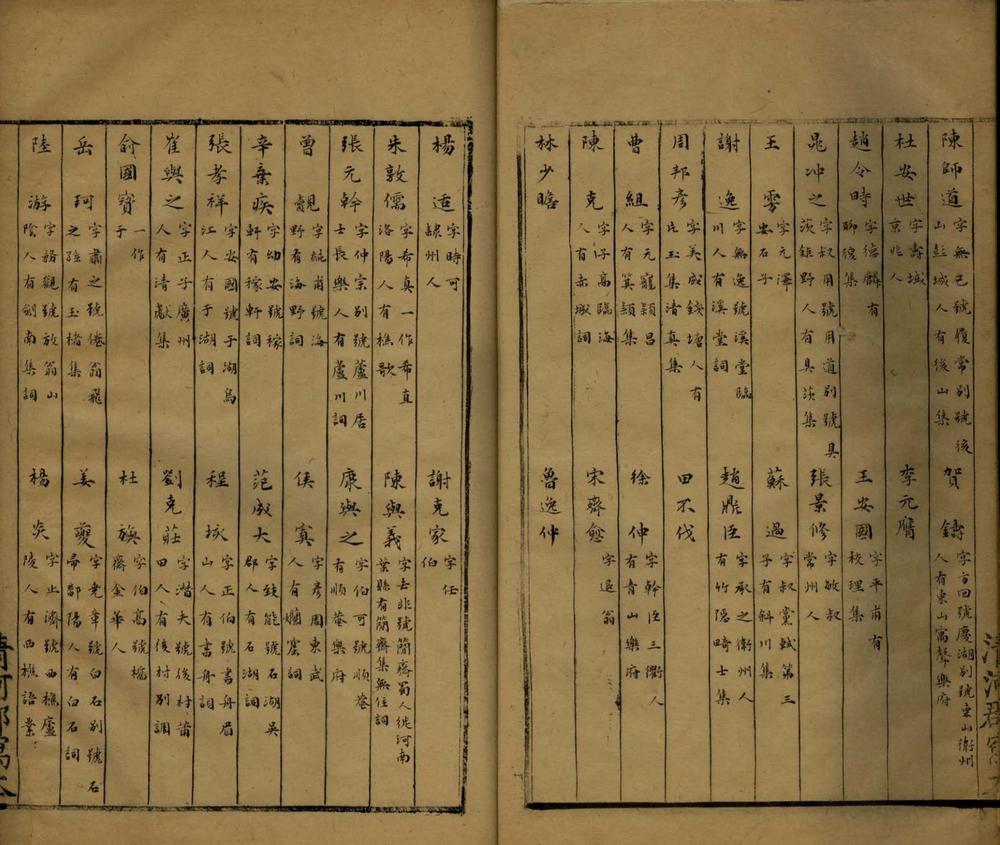 陳師道 字無己號履常別號後山彭城人有後山集
賀 鑄 字方回號慶湖別號東山衛州人有東山寓聲樂府
杜安世 字壽域京兆人
李元膺
趙令畤 字德麟有聊復集
王安國 字平甫有校理集
晁冲之 字叔用號用道別號具茨鉅野人有具茨集
張景修 字敏叔常州人
王 雱 字元澤安石子
蘇 過 字叔黨軾第三子有斜川集
謝 逸 字無逸號溪堂臨川人有溪堂詞
趙鼎臣 字承之衛州人有竹隱畸士集
周邦彥 字美成錢塘人有片玉集清真集
田不伐
曹 組 字元寵潁昌人有箕潁集
徐 伸 字幹臣三衢人有青山樂府
陳 克 字子高臨海人有赤城詞
宋齊愈 字退翁
林少瞻
魯逸仲
楊 适 字時可隸州人
謝克家 字任伯
朱敦儒 字希真一作希直洛陽人有樵歌
陳與義 字去非號簡齋蜀人徙河南葉縣有簡齋集無住詞
張元幹 字仲宗別號蘆川居士長樂人有蘆川詞
康與之 字伯可號順菴有順菴樂府
曾 覿 字純甫號海野有海野詞
侯 寘 字彥周東武人有嬾窟詞
辛棄疾 字幼安號稼軒有稼軒詞
范成大 字致能號石湖吳郡人有石湖詞
張孝祥 字安國號于湖烏江人有于湖詞
程 垓 字正伯號書舟眉山人有書舟詞
崔與之 字正子廣州人有清獻集
劉克莊 字潛夫號後村莆田人有後村別調
俞國寶 一作于
杜 旟 字伯高號橘齋金華人
岳 珂 字肅之號倦翁飛之孫有玉楮集
姜 夔 字堯章號白石別號石帚鄱陽人有白石詞
陸 游 字務觀號放翁山陰人有劍南集詞
楊 炎 字止濟號西樵廬陵人有西樵語業